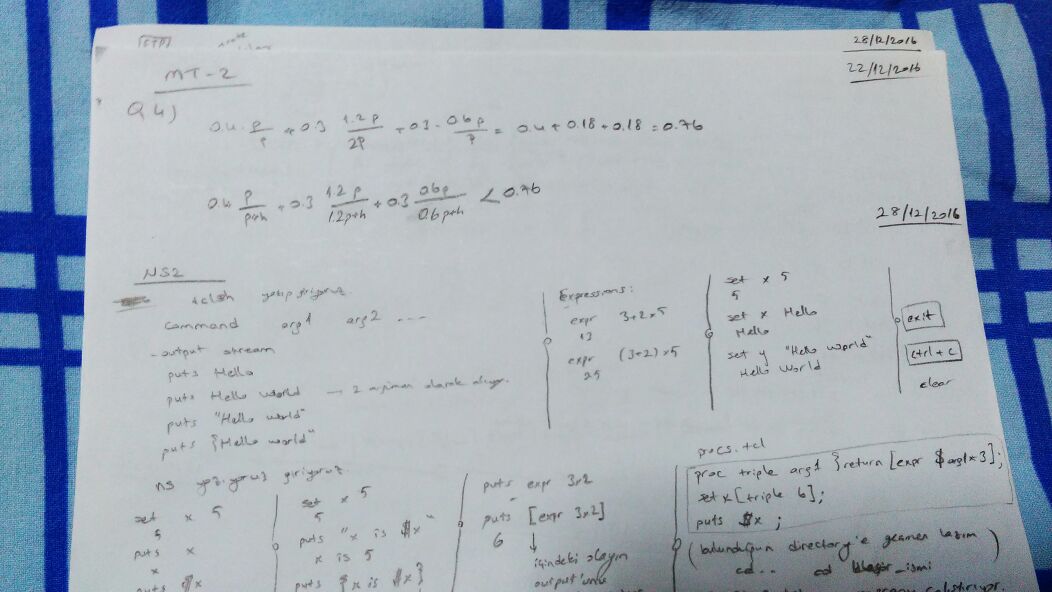 28/12/2016
MT-2
22/12/2016
Q4)
0.4 · p/p + 0.3 1.2p/2p + 0.3 · 0.6p/p = 0.4 + 0.18 + 0.18 = 0.76
0.4 p/p+h + 0.3 1.2p/1.2p+h + 0.3 0.6p/0.6p+h < 0.76
28/12/2016
NS2
tclsh yazıp giriyoruz.
command arg1 arg2 ...
- output stream
puts Hello
puts Hello world — 2 argüman olarak alıyor.
puts "Hello world"
puts {Hello world"
Expressions:
expr 3+2×5
13
expr (3+2)×5
25
set x 5
5
set x Hello
Hello
set y "Hello world"
Hello World
exit
ctrl + c
clear
ns yazıyoruz giriyoruz
set x 5
5
puts x
x
puts $x
set x 5
5
puts "x is $x"
x is 5
puts {x is $x}
puts expr 3x2
puts [expr 3x2]
6 ↓
içindeki olayın
output'unu
procs.tcl
proc triple arg1 }return [expr $arg1×3];
set x [triple 6];
puts $x ;
(bulunduğun directory'e geçmen lazım)
cd .. cd klasör_ismi
çalıştırıyor.